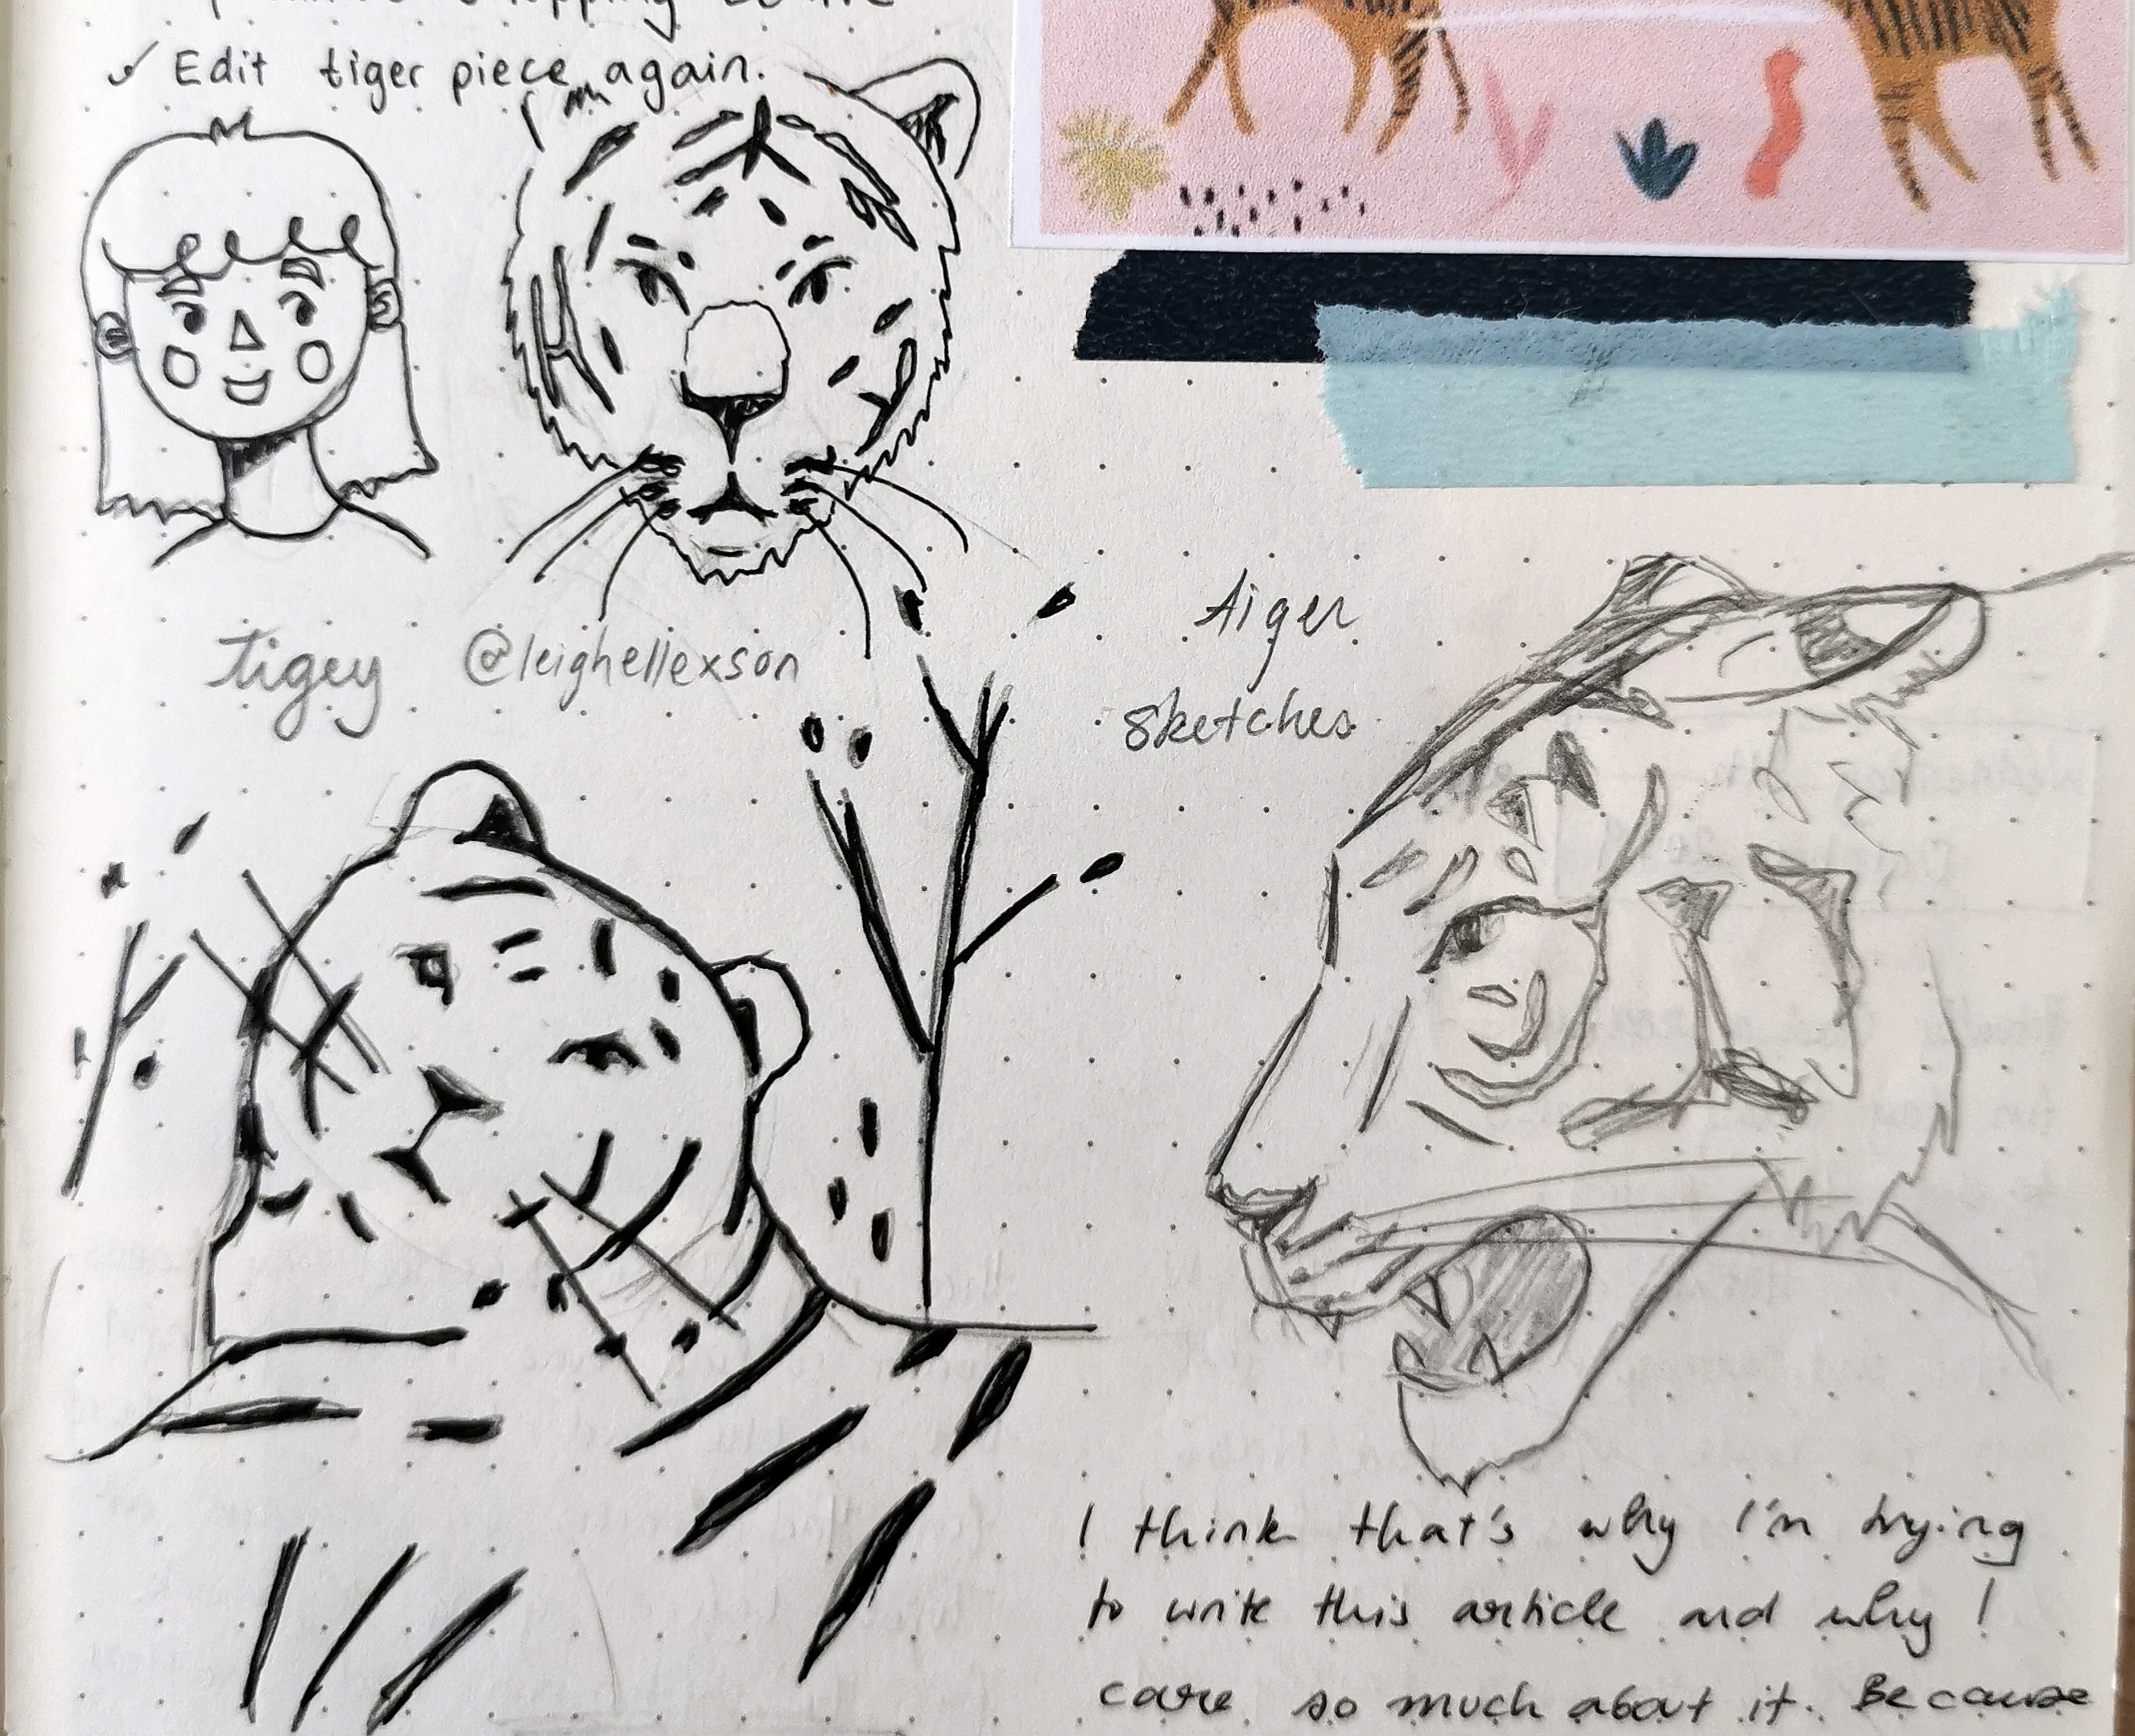 shopping
✓ Edit tiger piece again.
tigey @leighellexson
tiger
sketches
I think that's why I'm trying
to write this article and why I
care so much about it. Because